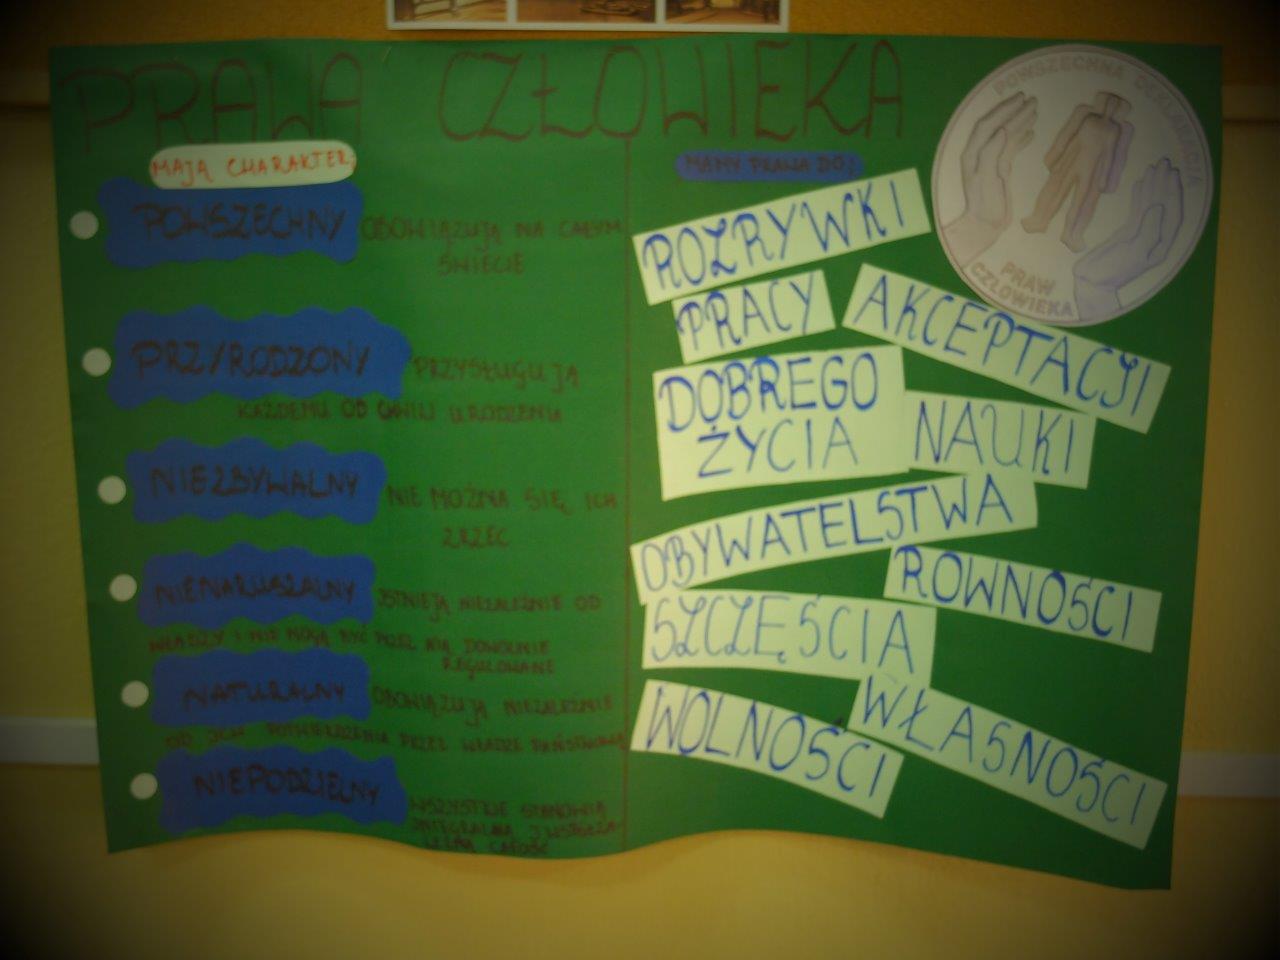 PRAWA CZŁOWIEKA
MAJĄ CHARAKTER:
POWSZECHNY OBOWIĄZUJĄ NA CAŁYM
ŚWIECIE
PRZYRODZONY PRZYSŁUGUJĄ
KAŻDEMU OD CHWILI URODZENIA
NIEZBYWALNY NIE MOŻNA SIĘ ICH
ZRZEC
NIENARUSZALNY ISTNIEJĄ NIEZALEŻNIE OD
WŁADZY I NIE MOGĄ BYĆ PRZEZ NIĄ DOWOLNIE
REGULOWANE
NATURALNY OBOWIĄZUJĄ NIEZALEŻNIE
OD ICH POTWIERDZENIA PRZEZ WŁADZE PAŃSTWOWĄ
NIEPODZIELNY WSZYSTKIE STANOWIĄ
INTEGRALNĄ I
CAŁOŚĆ
MAMY PRAWA DO:
ROZRYWKI
PRACY
AKCEPTACJI
DOBREGO
ŻYCIA
NAUKI
OBYWATELSTWA
ROWNOŚCI
SZCZĘŚCIA
WOLNOŚCI
WŁASNOŚCI
POWSZECHNA DEKLARACJA
PRAW
CZŁOWIEKA